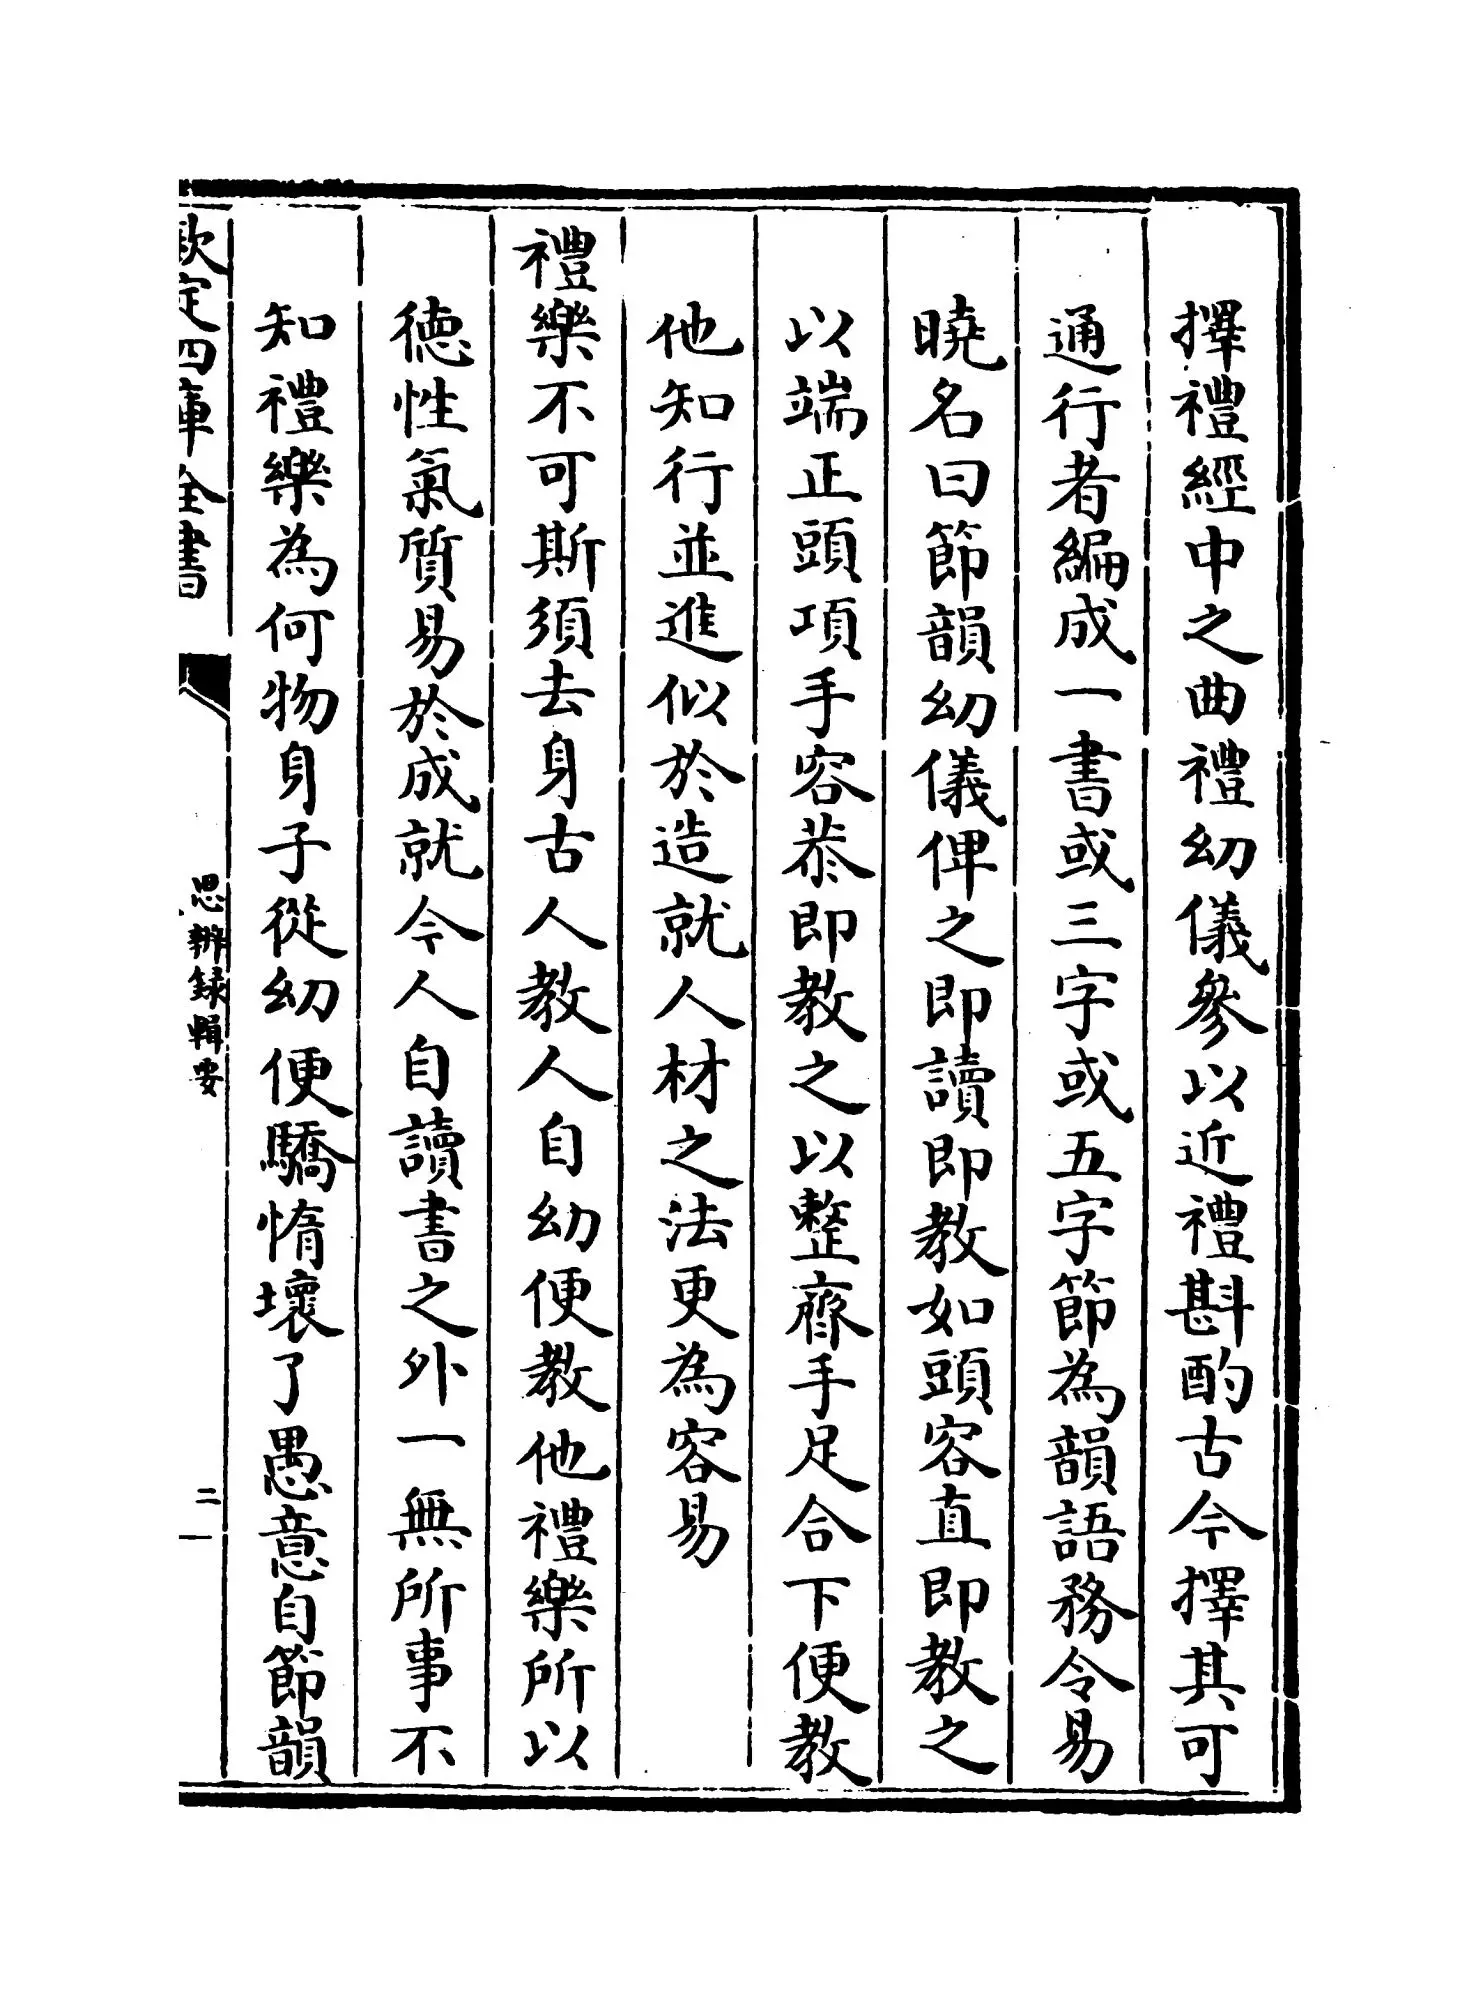 擇禮經中之曲禮幼儀參以近禮斟酌古今擇其可
通行者編成一書或三字或五字節為韻語務令易
曉名曰節韻幼儀俾之即讀即教如頭容直即教之
以端正頭項手容恭即教之以整齊手足合下便教
他知行並進似於造就人材之法更為容易
禮樂不可斯須去身古人教人自幼便教他禮樂所以
德性氣質易於成就今人自讀書之外一無所事不
知禮樂為何物身子從幼便驕惰壞了愚意自節韻
欽定四庫全書
思辨錄輯要
二